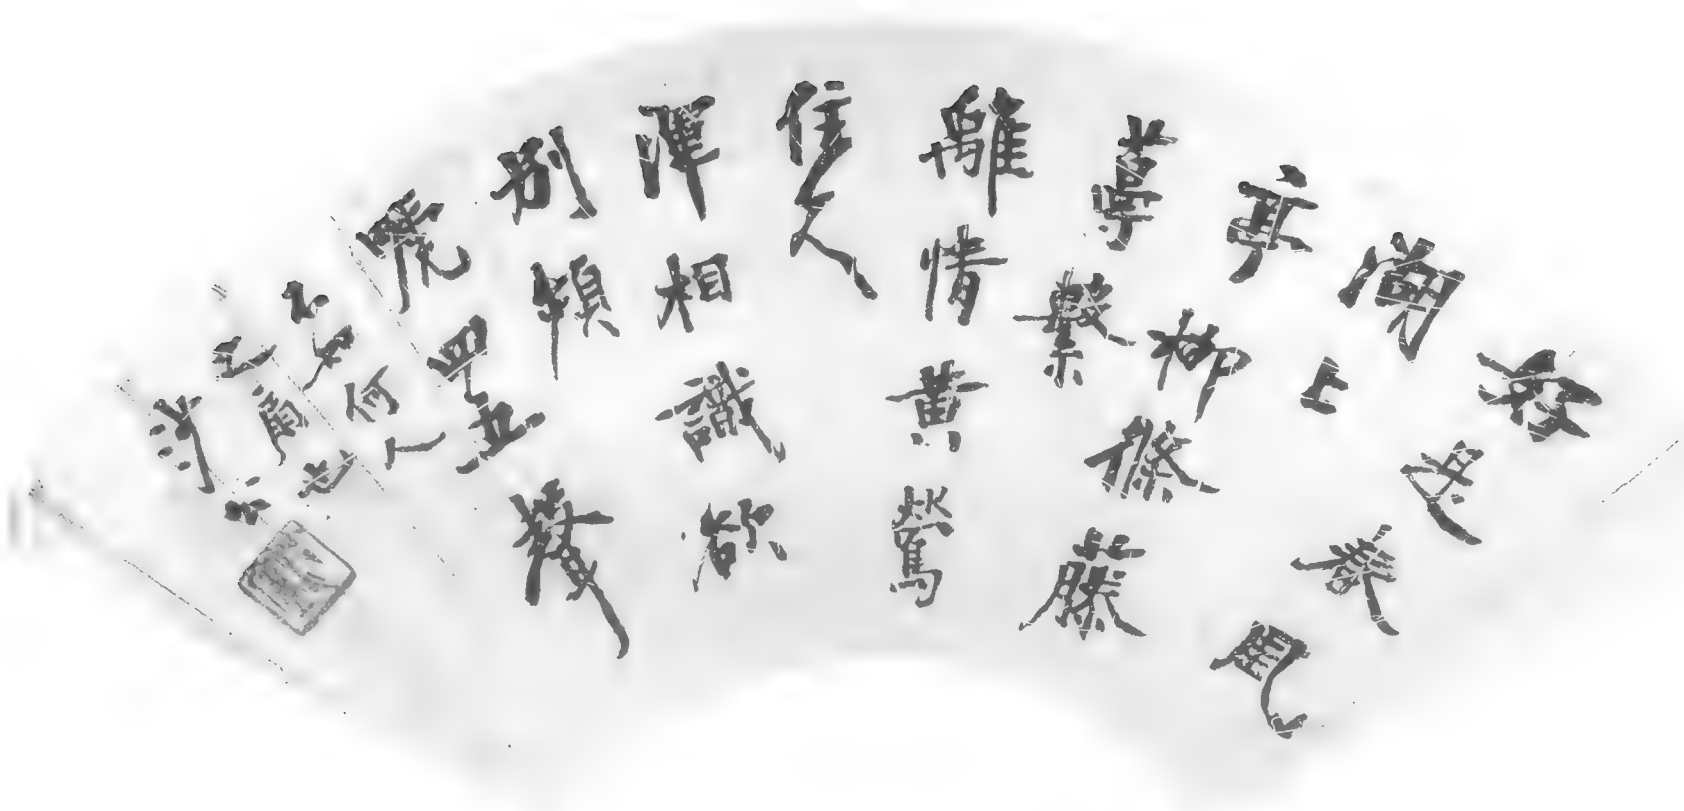 好是春風
湖上
亭柳條藤
蔓繫
離情黃鶯
住久
渾相識欲
別頻
嗁四五聲